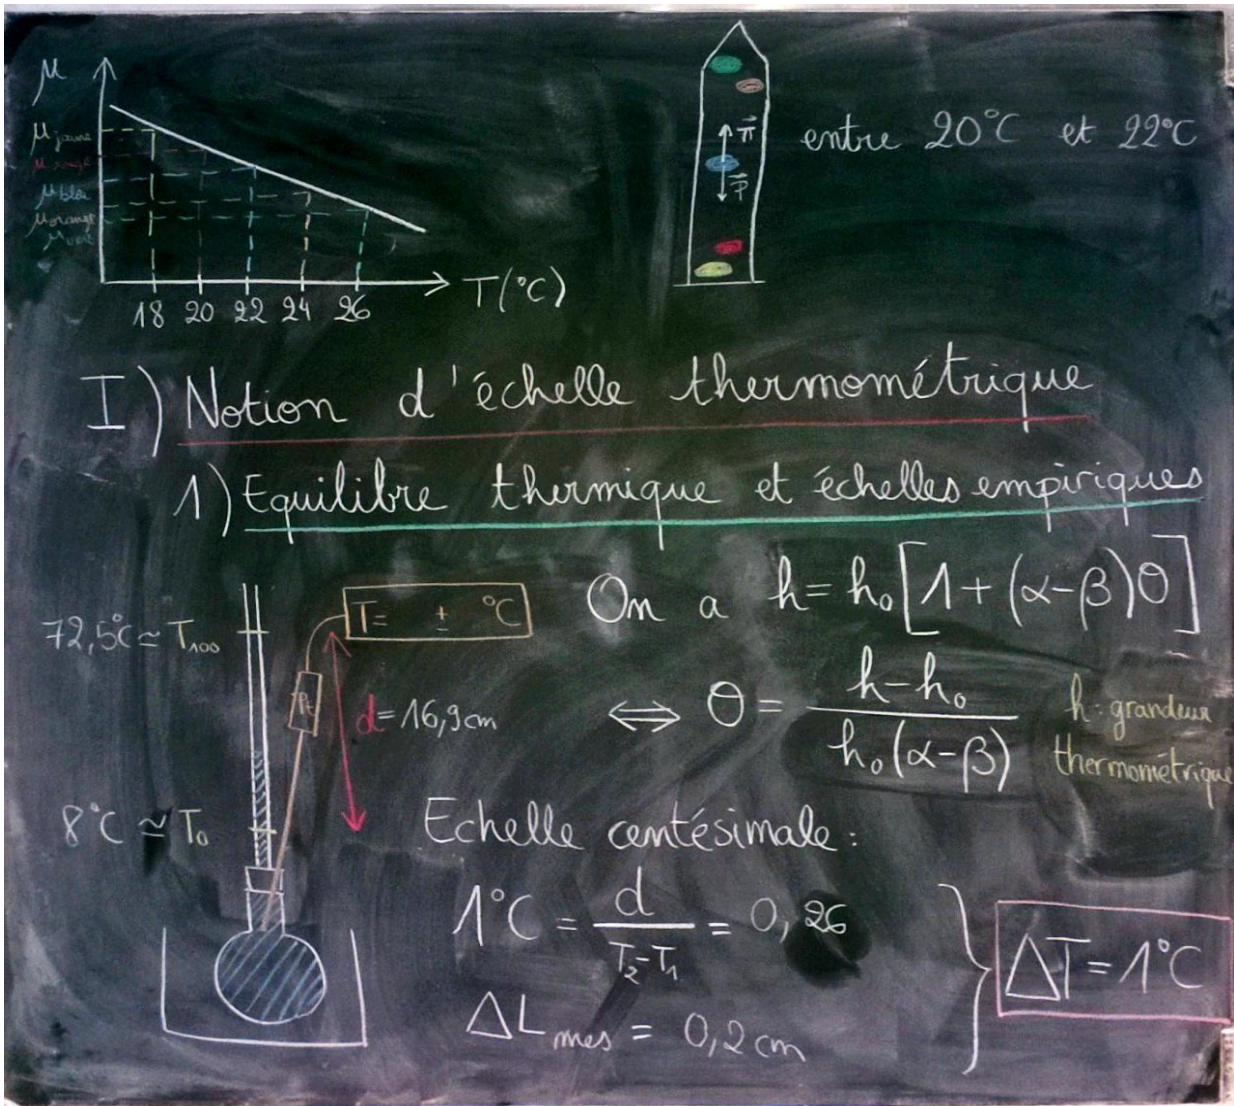 μ
μ jaune
μ rouge
μ bleu
μ orange
μ vert
18 20 22 24 26
T(°C)
π
P
entre 20°C et 22°C
I) Notion d'échelle thermométrique
1) Equilibre thermique et échelles empiriques
72,5°C ≃ T₁₀₀
T= ± °C
Pt
d = 16,9 cm
8°C ≃ T₀
On a h = h₀[1 + (α-β)θ]
⟺ θ = (h-h₀)/(h₀(α-β))
h: grandeur
thermométrique
Echelle centésimale :
1°C = d/(T₂-T₁) = 0,26
ΔL mes = 0,2 cm
ΔT = 1°C